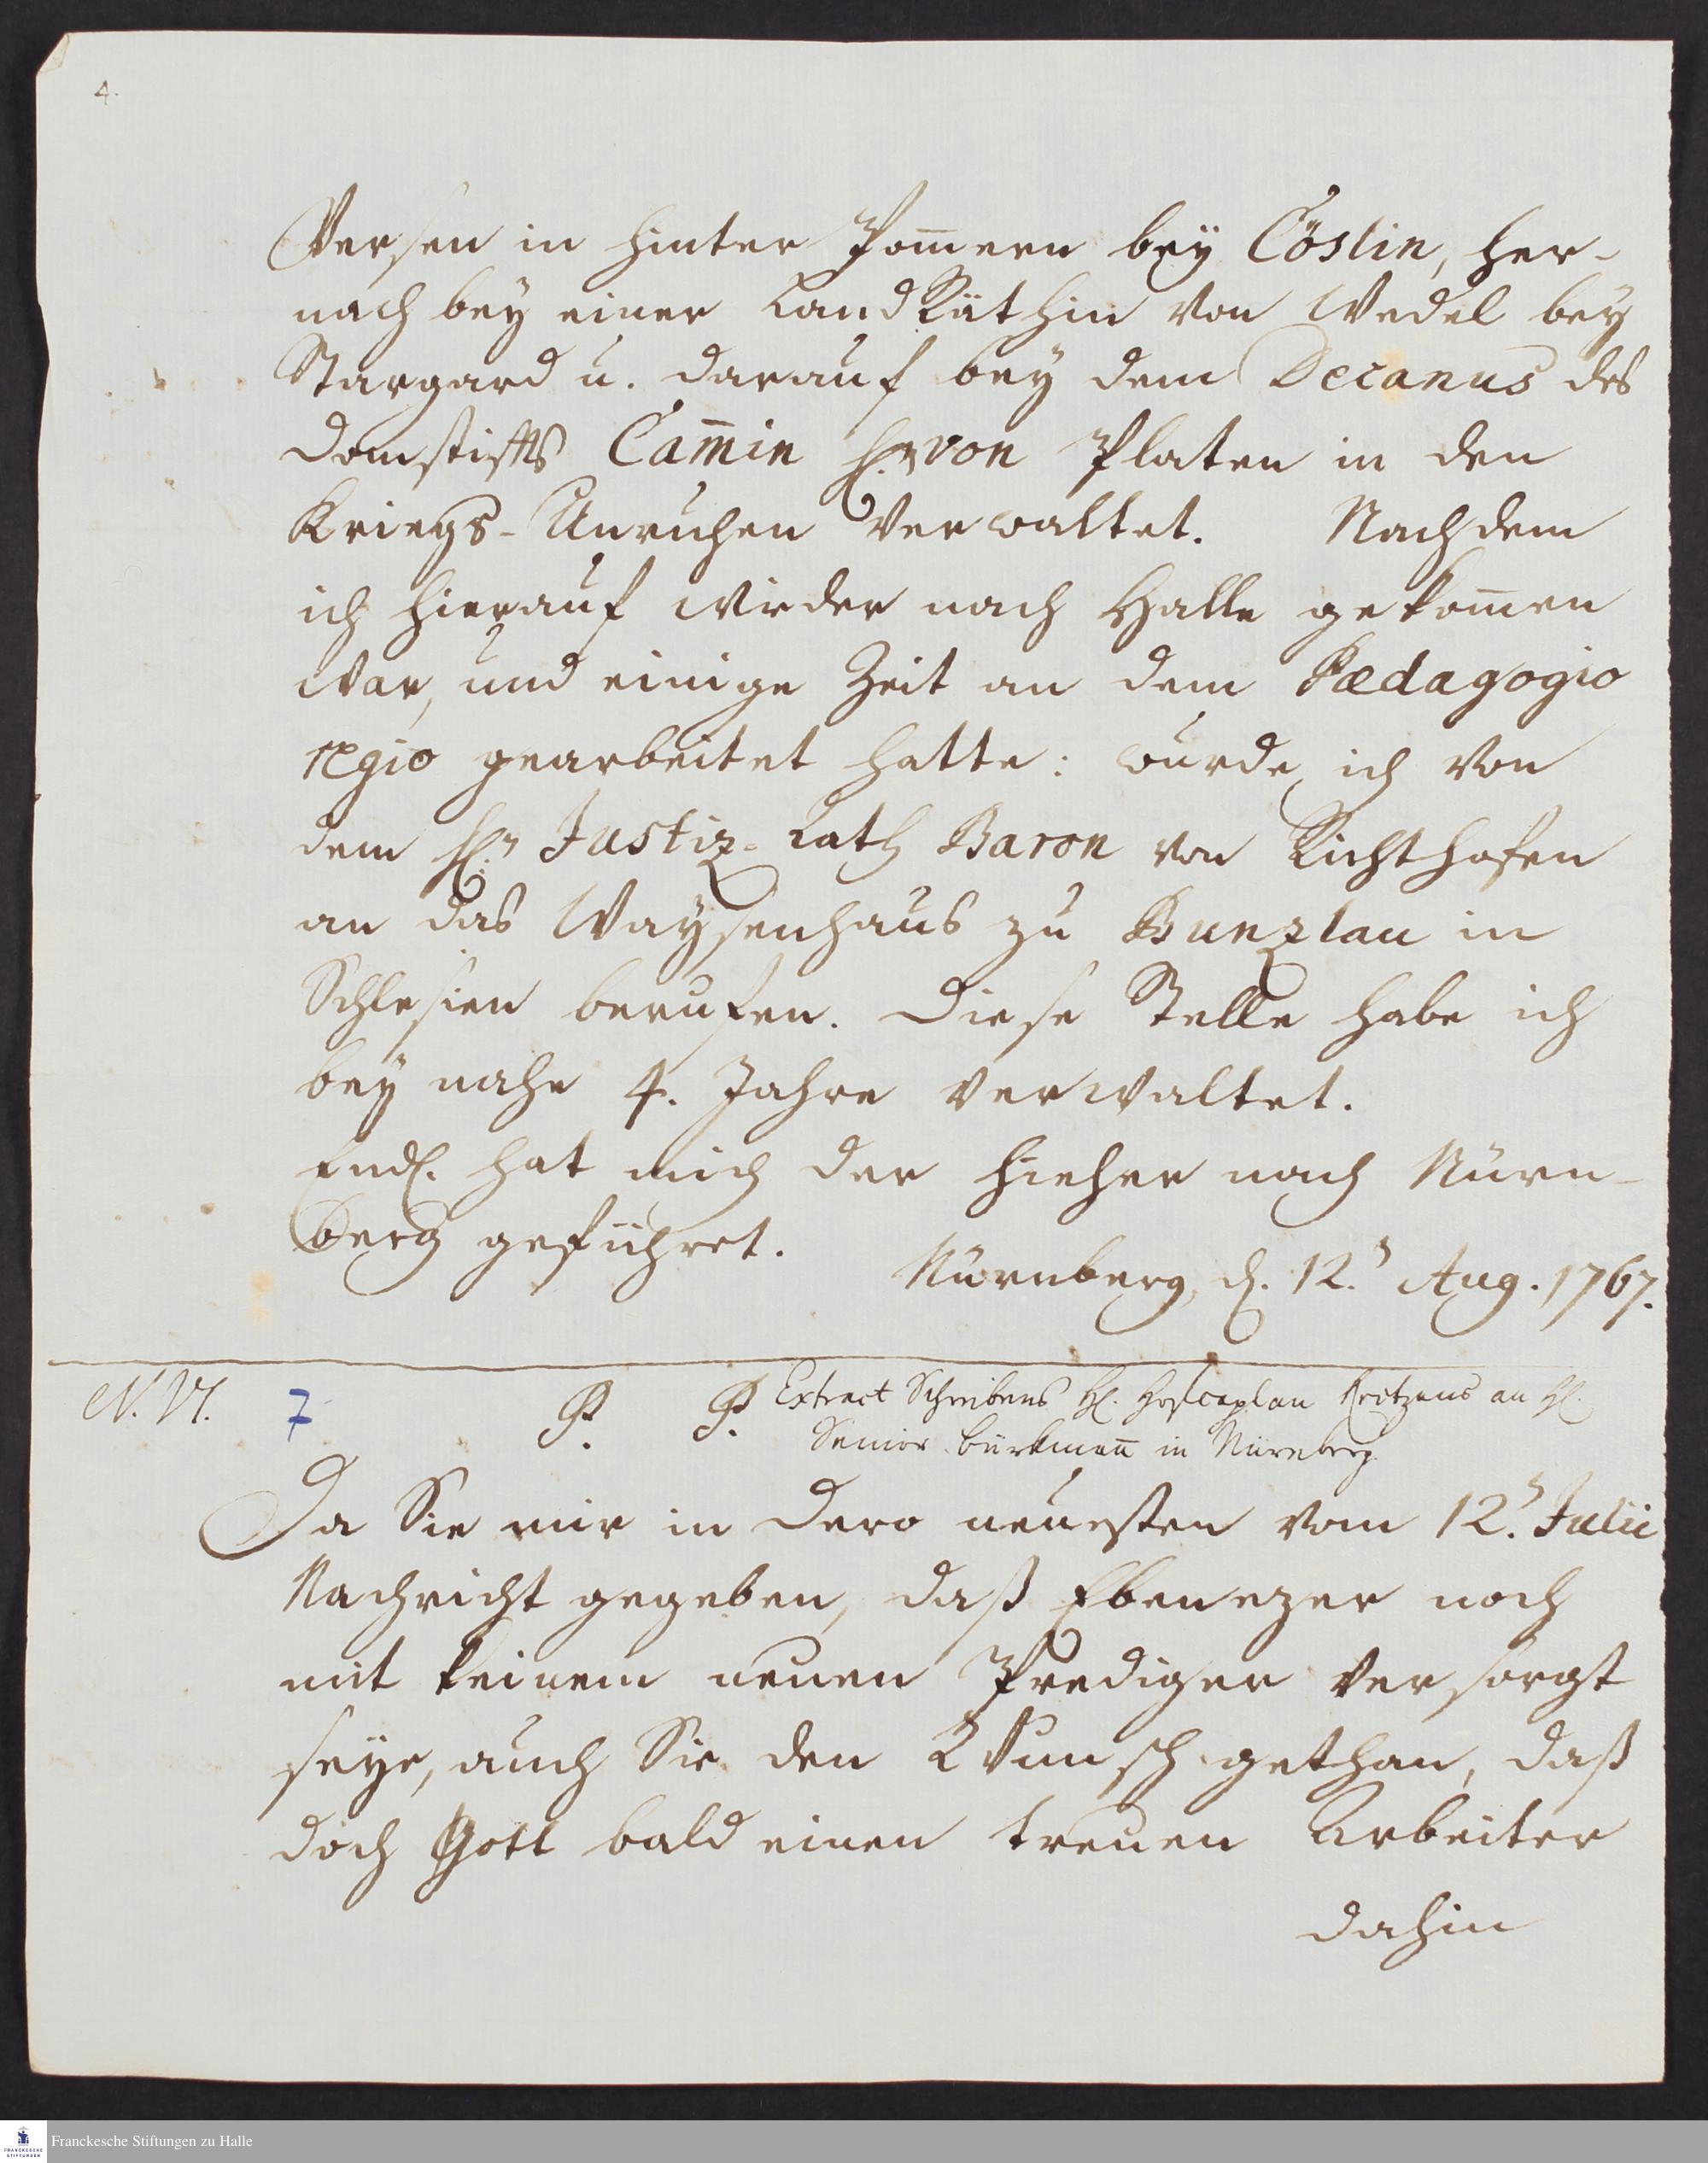 4.
Versen in hinter Pom̄ern bey Cöslin, her-
nach bey einer LandRäthin von Wedel bey
Stargard u. darauf bey dem Decanus des
Domstiffts Cam̄in H.n von Platen in den
Kriegs-Unruhen verwaltet. Nachdem
ich hierauf wieder nach Halle gekom̄en
war, und einige Zeit an dem Pædagogio
regio gearbeitet hatte: wurde ich von
dem H.n Justiz-Rath Baron von Richthofen
an das Waysenhaus zu Bunzlau in
Schlesien berufen. Diese Stelle habe ich
bey nahe 4. Jahre verwaltet.
Endl. hat mich der hieher nach Nürn-
berg geführet.
Nürnberg, d. 12.n Aug. 1767.
N. VI. 7 P. P. Extract Schreibens H. Hofcaplan Kritzens an H.
Senior Bürkman̄ in Nürnberg.
Da Sie mir in Dero neuesten vom 12.n Julii
Nachricht gegeben, daß Ebenezer noch
mit keinem neuen Prediger versorgt
seye, auch Sie den Wunsch gethan, daß
doch Gott bald einen treuen Arbeiter
dahin
Franckesche Stiftungen zu Halle
FRANCKESCHE
STIFTUNGEN